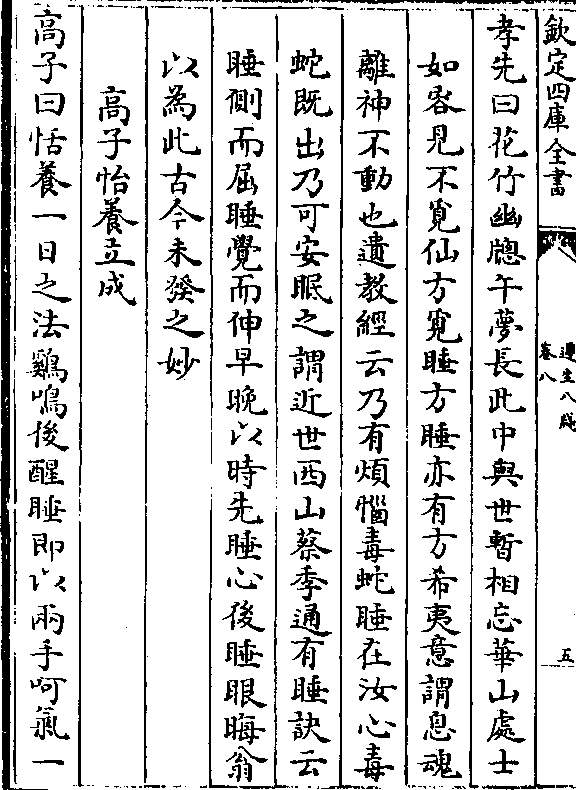 欽定四庫全書
遵生八牋
卷八
五
孝先曰花竹幽牕午夢長此中與世暫相忘華山處士
如容見不覓仙方覓睡方睡亦有方希夷意謂息魂
離神不動也遺教經云乃有煩惱毒蛇睡在汝心毒
蛇既出乃可安眠之謂近世西山蔡季通有睡訣云
睡側而屈睡覺而伸早晚以時先睡心後睡眼晦翁
以為此古今未發之妙
高子怡養立成
高子曰恬養一日之法鷄鳴後醒睡即以兩手呵氣一